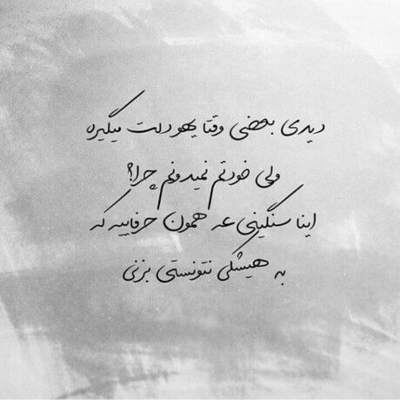 دیدی بعضی وقتا یهو دلت میگیره
ولی خودتم نمیدونم چرا؟
اینا سنگینی عه همون حرفاییه که
به هیشکی نتونستی بزنی